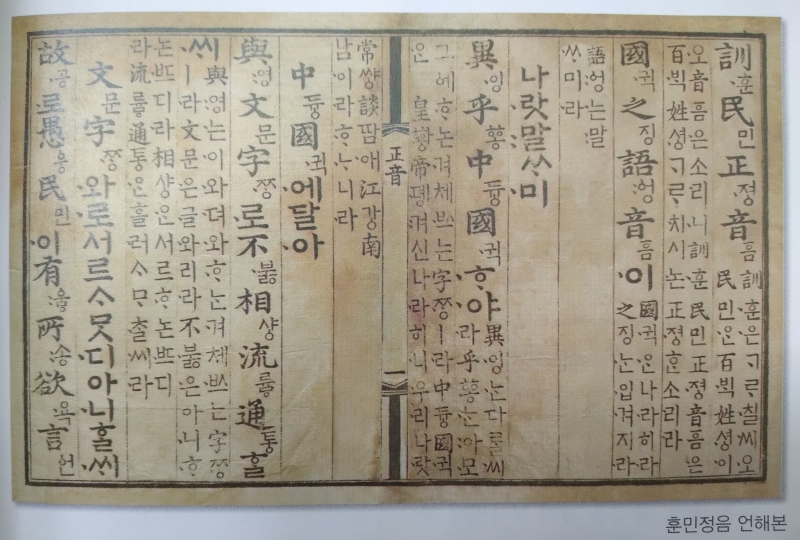 訓훈民민正졍音ᅙᅳᆷ 訓훈은ᄀᆞᄅᆞ칠씨오
民민은百ᄇᆡᆨ姓셩이
오音ᅙᅳᆷ은소리니訓훈民민正졍音ᅙᅳᆷ은
百ᄇᆡᆨ姓셩ᄀᆞᄅᆞ치시논正졍ᄒᆞᆫ소리라
國귁之징語ᅌᅥᆼ音ᅙᅳᆷ이 國귁ᄋᆞᆫ나라히라
之징ᄂᆞᆫ입겨지라
語ᅌᅥᆼ는말
ᄊᆞ미라
나랏말ᄊᆞ미
異잉乎ᅘᅩᆼ中듀ᇰ國귁ᄒᆞ야 異잉ᄂᆞᆫ다ᄅᆞᆯ씨
라乎ᅘᅩᆼᄂᆞᆫ아모
그ᅌᅦᄒᆞ논겨체ᄡᅳ는字ᄍᆞᆼㅣ라中듀ᇰ國귁
ᄋᆞᆫ皇ᅘᅪᇰ帝뎽겨신나라히니우리나랏
正音
一
常쌰ᇰ談땀애江가ᇰ南
남이라ᄒᆞᄂᆞ니라
中듀ᇰ國귁에달아
與영文문字ᄍᆞᆼ로不부ᇙ相샤ᇰ流류ᇢ通토ᇰᄒᆞᆯ
ᄊᆡ 與영는이와뎌와ᄒᆞᄂᆞᆫ겨체ᄡᅳ는字ᄍᆞᆼ
ㅣ라文문은글와리라不부ᇙ은아니ᄒᆞ
논ᄠᅳ디라相샤ᇰᄋᆞᆫ서르ᄒᆞ논ᄠᅳ디
라流류ᇢ通토ᇰᄋᆞᆫ흘러ᄉᆞᄆᆞᄎᆞᆯ씨라
文문字ᄍᆞᆼ와로서르ᄉᆞᄆᆞᆺ디아니ᄒᆞᆯᄊᆡ
故공로愚ᅌᅮᆼ民민이有ᅌᅮᇢ所송欲욕言ᅌᅥᆫ
훈민정음 언해본